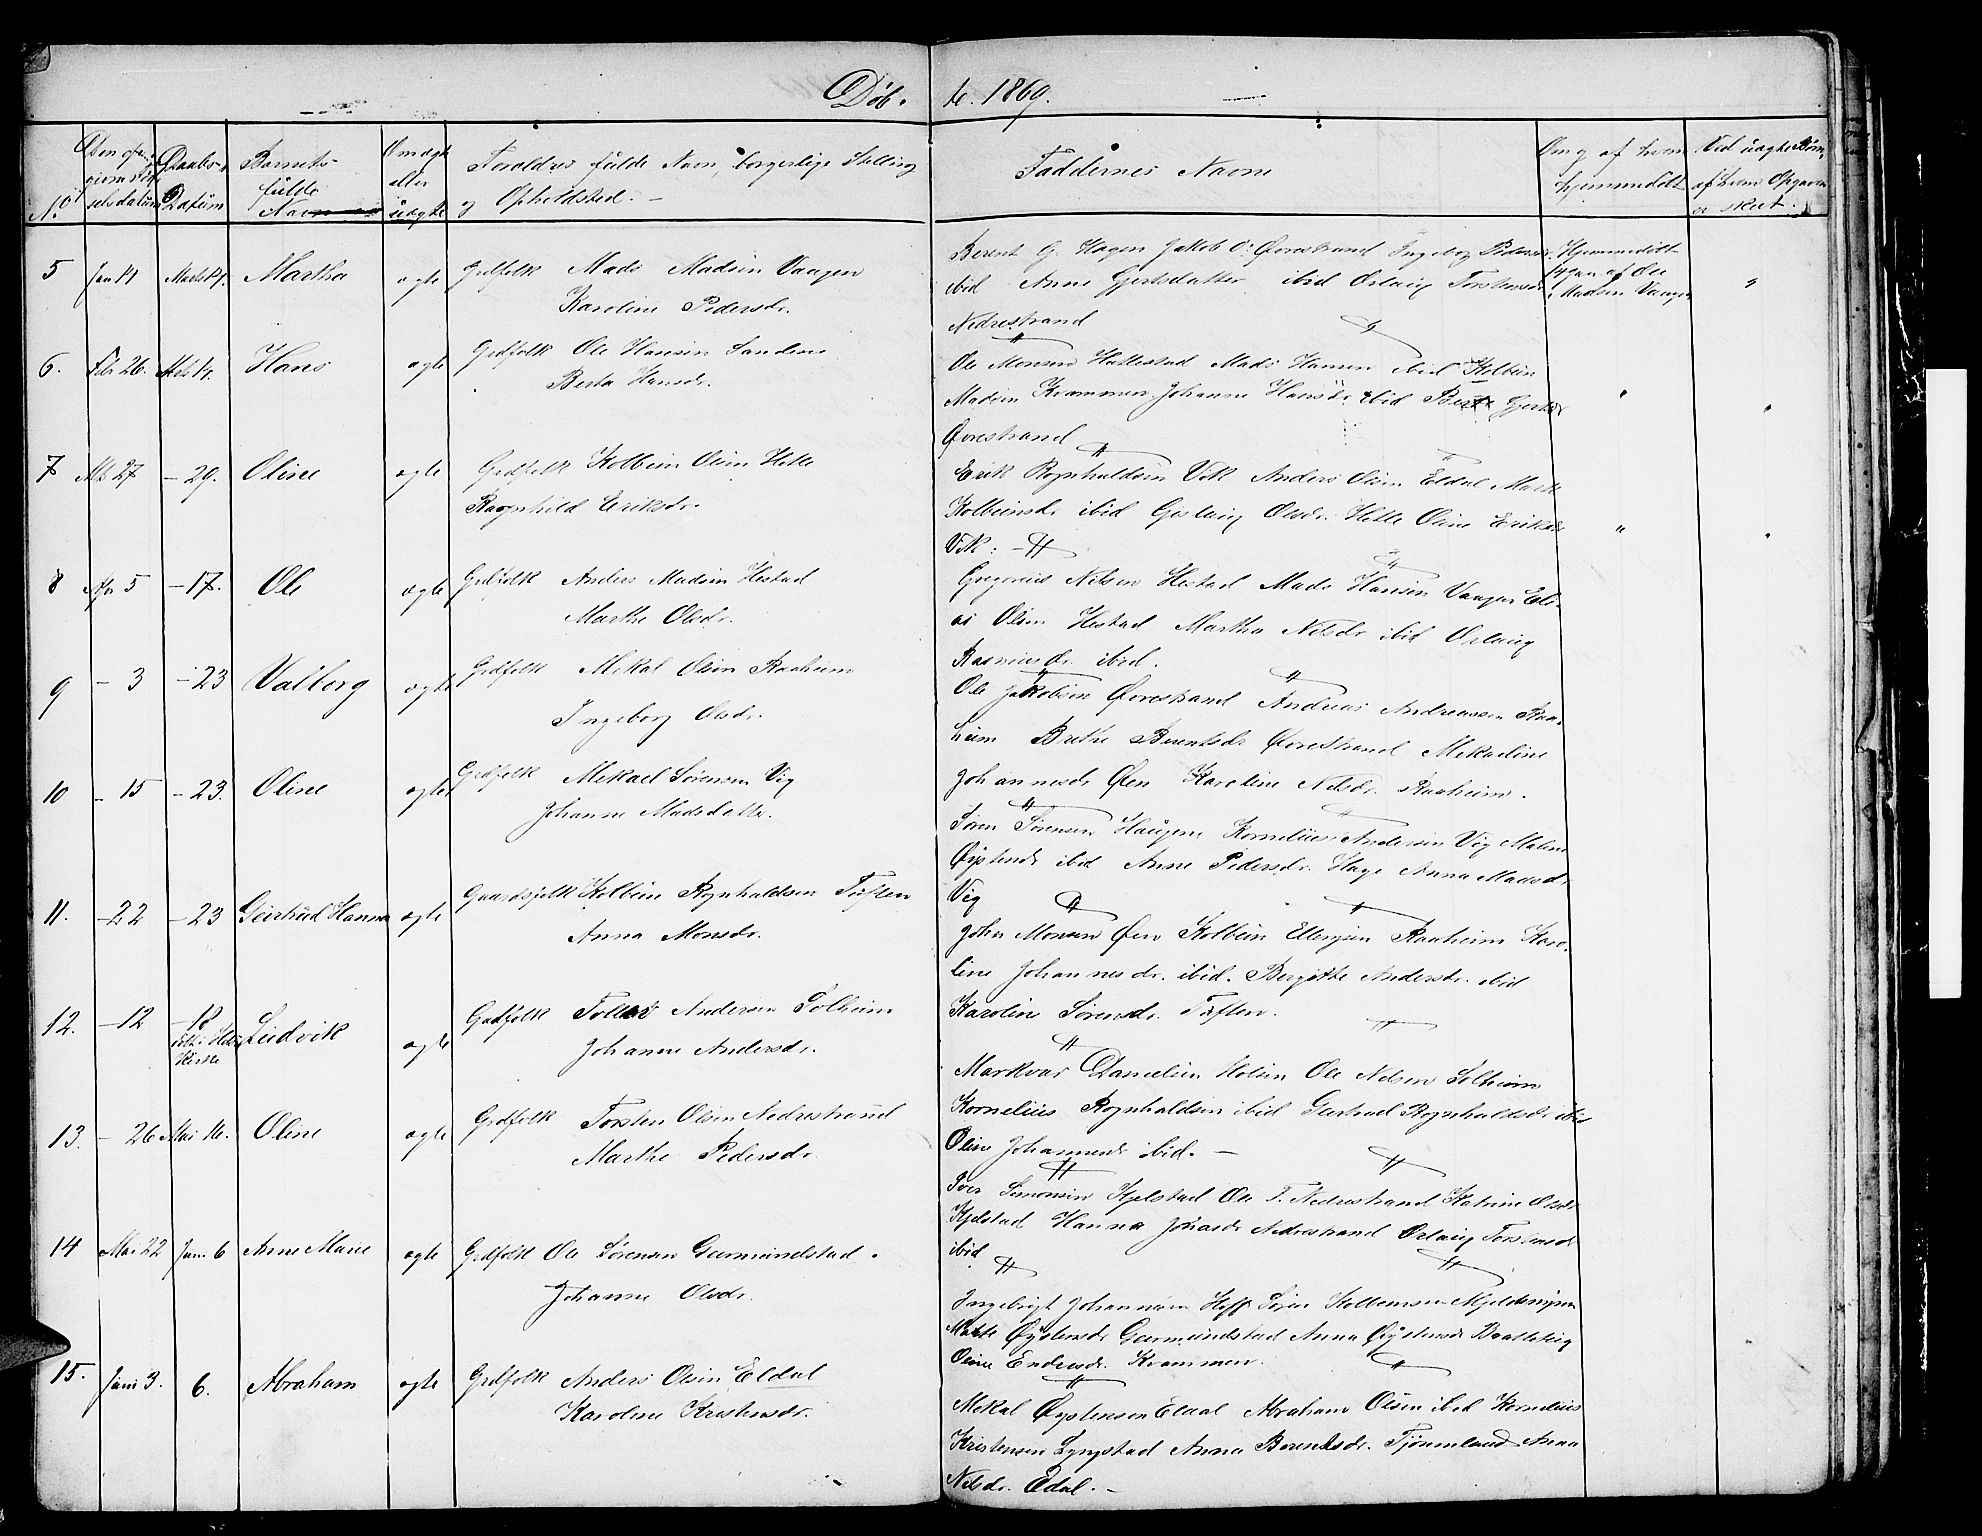 Døb. te. 1869.
No
Daabs-
Datum
Barnets
fulde
Navn
eller
uægte
Forældres fulde Navn, borgerlige Stilling
og Opholdsted. -
Faddernes Navne
Om og af hvem
hjemmedøbt
er skeet.
5 Jan 14 Martha ægte Grdfolk Mads Madsen Vaagen
Karoline Pedersdr.
Berent G. Hagen Jakob O: Øvrestrand Ingeborg Peders
ibid Anne Gjertsdatter ibid Orlaug Torstensdr
Nedrestrand
Hjemmedøbt
Madsen Vaagen
6. Febr 26. Hans ægte Grdfolk Ole Hansen Sandene
Berta Hansdr.
Ole Monsen Hattestad Mads Hansen ibid Kolbein
Madsen Krammen Johanne Hansdr ibid Berte Gjertsdr
Øvrestrand
7 Mts 27 - 29. Oline ægte Grdfolk Kolbein Olsen Hetle
Ragnhild Eriksdr.
Erik Rognhaldsen Vik Anders Olsen Eldal Marte
Kolbeinsdr ibid Olsdr. Hetle Oline Eriksdr
Vik: -
8 Apr 5 - 17. Ole ægte Grdfolk Anders Madsen Hestad
Marthe Olsdr.
Gregorius Nilsen Hestad Mads Hansen Vaagen Eli-
as Olsen Hestad Martha Nilsdr ibid Orlaug
Rasmusdr. ibid.
9 - 3 - 23 Valborg ægte Grdfolk Mikal Olsen Raaheim
Ingeborg Olsdr.
Ole Jakobsen Øvrestrand Andreas Andreassen Raa-
heim Brethe Berentsdr Øvrestrand Mikaeline
Johannesdr Øen Karoline Nilsdr. Raaheim.
10 - 15 - 23. Oline ægte Grdfolk Mikael Sørensen Vig
Johanne Madsdatter.
Søren Sørensen Haugene Kornelius Andersen Vig Malene
Øystensdr ibid Anne Pedersdr. Hage Anna Madsdr
Vig
11. - 22 - 23 Geirtrud Hanna ægte Gaardsfolk Kolbein Rognhaldsen Tuften
Anna Monsdr.
John Monsen Øen Kolbein Ellingsen Raaheim Karo-
line Johannesdr. ibid. Bergitte Andersdr. ibid
Karoline Sørensdr. Tuften.
12. - 12 - 18 Ludvik ægte Grdfolk Tollev Andersen Solheim
Kirke
Johanne Andersdr.
Markvar Danielsen Holsen Ole Nilsen Solheim
Kornelius Rognhaldsen ibid Gertrud Rognhaldsdr ibid
Oline Johannesdr ibid. -
13. - 26 Mai 16. Oline ægte Grdfolk Torsten Olsen Nedrestrand
Marthe Pedersdr.
Iver Simonsen Kjelstad Ole T. Nedrestrand Katrine Olsdr
Kjelstad Hanna Johansdr Nedrestrand Orlaug Torstensdr
ibid
14 Mai 22 Juni 6 Anne Marie ægte Grdfolk Ole Sørensen Geirmundstad.
Johanne Olsdr.
Ingebrigt Johannesen Hoff Søren Kolbeinsen
Øystensdr Geirmundstad Anna Øystensdr
Oline Endresdr. Krammen.
15. Juni 3. 6. Abraham ægte Grdfolk Anders Olsen Eldal
Karoline Kristensdr.
Mikal Øystensen Eldal Abraham Olsen ibid Kornelius
Kristensen Lyngstad Anna Berentsdr. Tjønneland Anna
Nilsdr. Edal. -